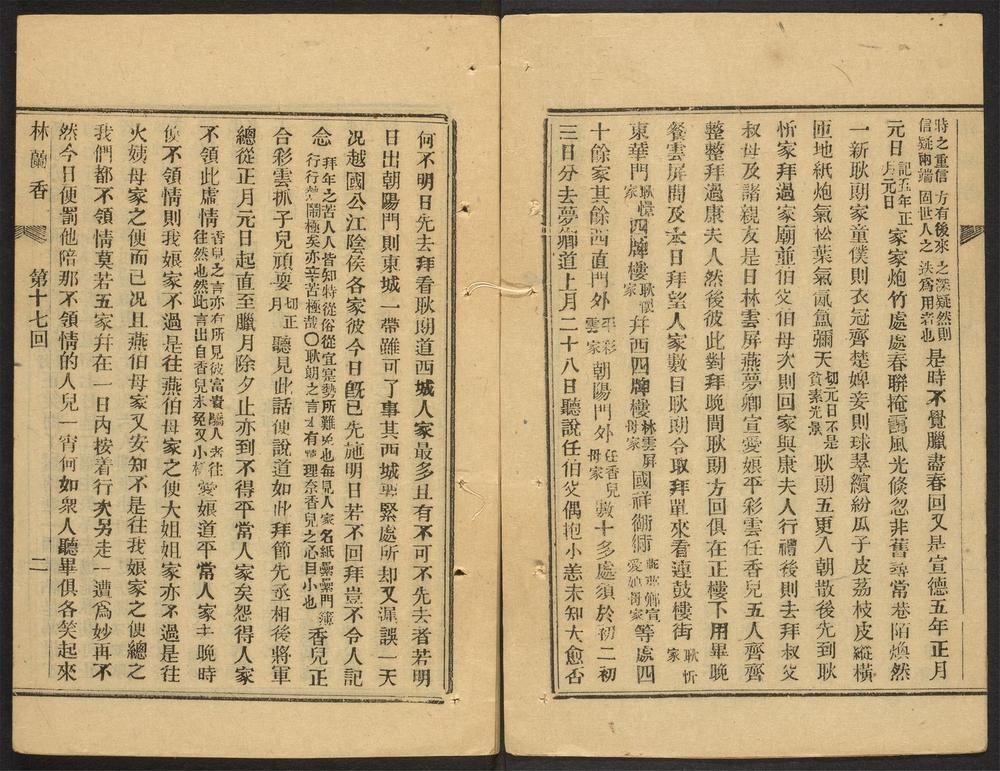 時之重信 方有後來 之深疑然則
信疑兩端 固世人之 迭爲用者也 是時不覺臘盡春回又是宣德五年正月
元日 記五年正月元日 家家炮竹處處春聯掩靄風光倏忽非舊尋常巷陌煥然
一新耿朗家童僕則衣冠齊楚婢妾則珠翠繽紛瓜子皮荔枝皮縱橫
匝地紙炮氣松葉氣氤氳彌天 切元日不是貧素光景 耿朗五更入朝散後先到耿
忻家拜過家廟並伯父伯母次則回家與康夫人行禮後則去拜叔父
叔母及諸親友是日林雲屏燕夢卿宣愛娘平彩雲任香兒五人齊齊
整整拜過康夫人然後彼此對拜晚間耿朗方回俱在正樓下用畢晚
餐雲屏問及去日拜望人家數目耿朗令取拜單來看連鼓樓街 耿忻家
東華門 耿憬家 四牌樓 耿懷家 幷西四牌樓 林雲屏母家 國祥衚衕 燕夢卿宣愛娘母家 等處四
十餘家其餘西直門外 平彩雲家 朝陽門外 任香兒母家 數十多處須於初二初
三日分去夢卿道上月二十八日聽說任伯父偶抱小恙未知大愈否
何不明日先去拜看耿朗道西城人家最多且有不可不先去者若明
日出朝陽門則東城一帶雖可了事其西城要緊處所却又漏誤一天
况越國公江陰侯各家彼今日旣已先施明日若不回拜豈不令人記
念 拜年之苦人人皆知特從俗從宜寔勢所難免也每見人家名紙纍纍門簿行行熱鬧極矣亦辛苦極哉〇耿朗之言才有情理奈香兒之心目小也 香兒正
合彩雲抓子兒頑耍 切正月 聽見此話便說道如此拜節先丞相後將軍
總從正月元日起直至臘月除夕止亦到不得平常人家矣怨得人家
不領此虛情 香兒之言亦有所見彼富貴驕人者往往然也然此言出自香兒未免又小樣 愛娘道平常人家主晚時
候不領情則我娘家不過是往燕伯母家之便大姐姐家亦不過是往
火姨母家之便而已况且燕伯母家又安知不是往我娘家之便總之
我們都不領情莫若五家幷在一日內按着行次另走一遭爲妙再不
然今日便罰他陪那不領情的人兒一宵何如衆人聽畢俱各笑起來
林蘭香 第十七回 二